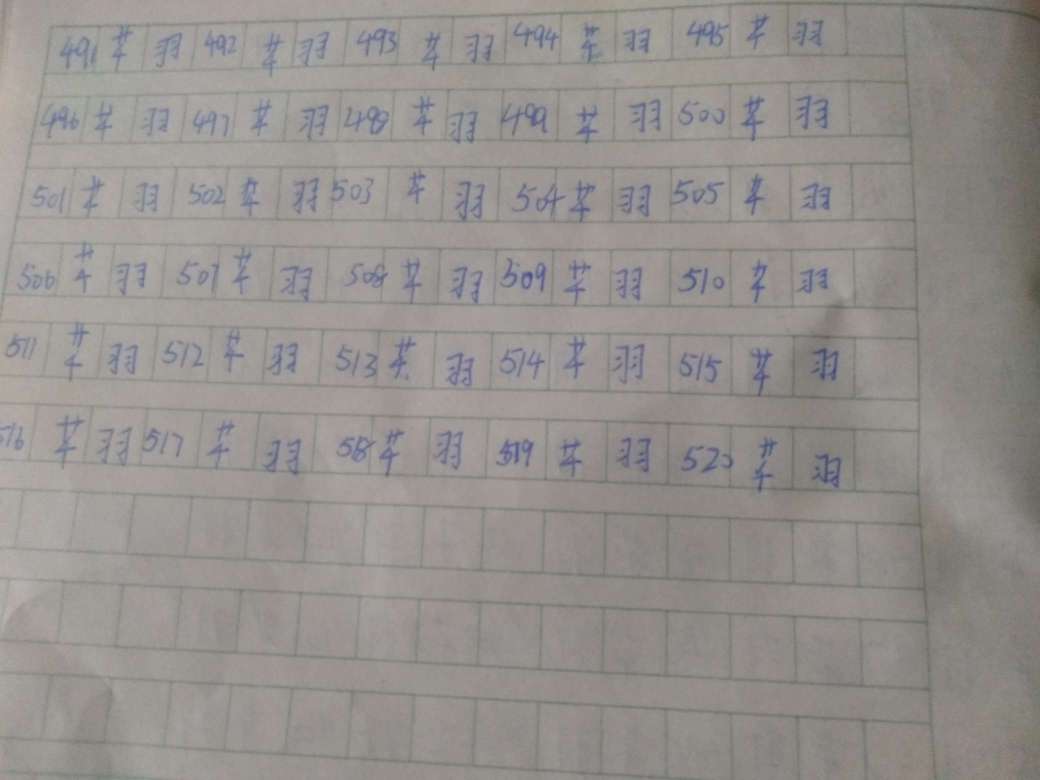 491 芊 羽 492 芊 羽 493 芊 羽 494 芊 羽 495 芊 羽
496 芊 羽 497 芊 羽 498 芊 羽 499 芊 羽 500 芊 羽
501 芊 羽 502 芊 羽 503 芊 羽 504 芊 羽 505 芊 羽
506 芊 羽 507 芊 羽 508 芊 羽 509 芊 羽 510 芊 羽
511 芊 羽 512 芊 羽 513 芊 羽 514 芊 羽 515 芊 羽
516 芊 羽 517 芊 羽 518 芊 羽 519 芊 羽 520 芊 羽